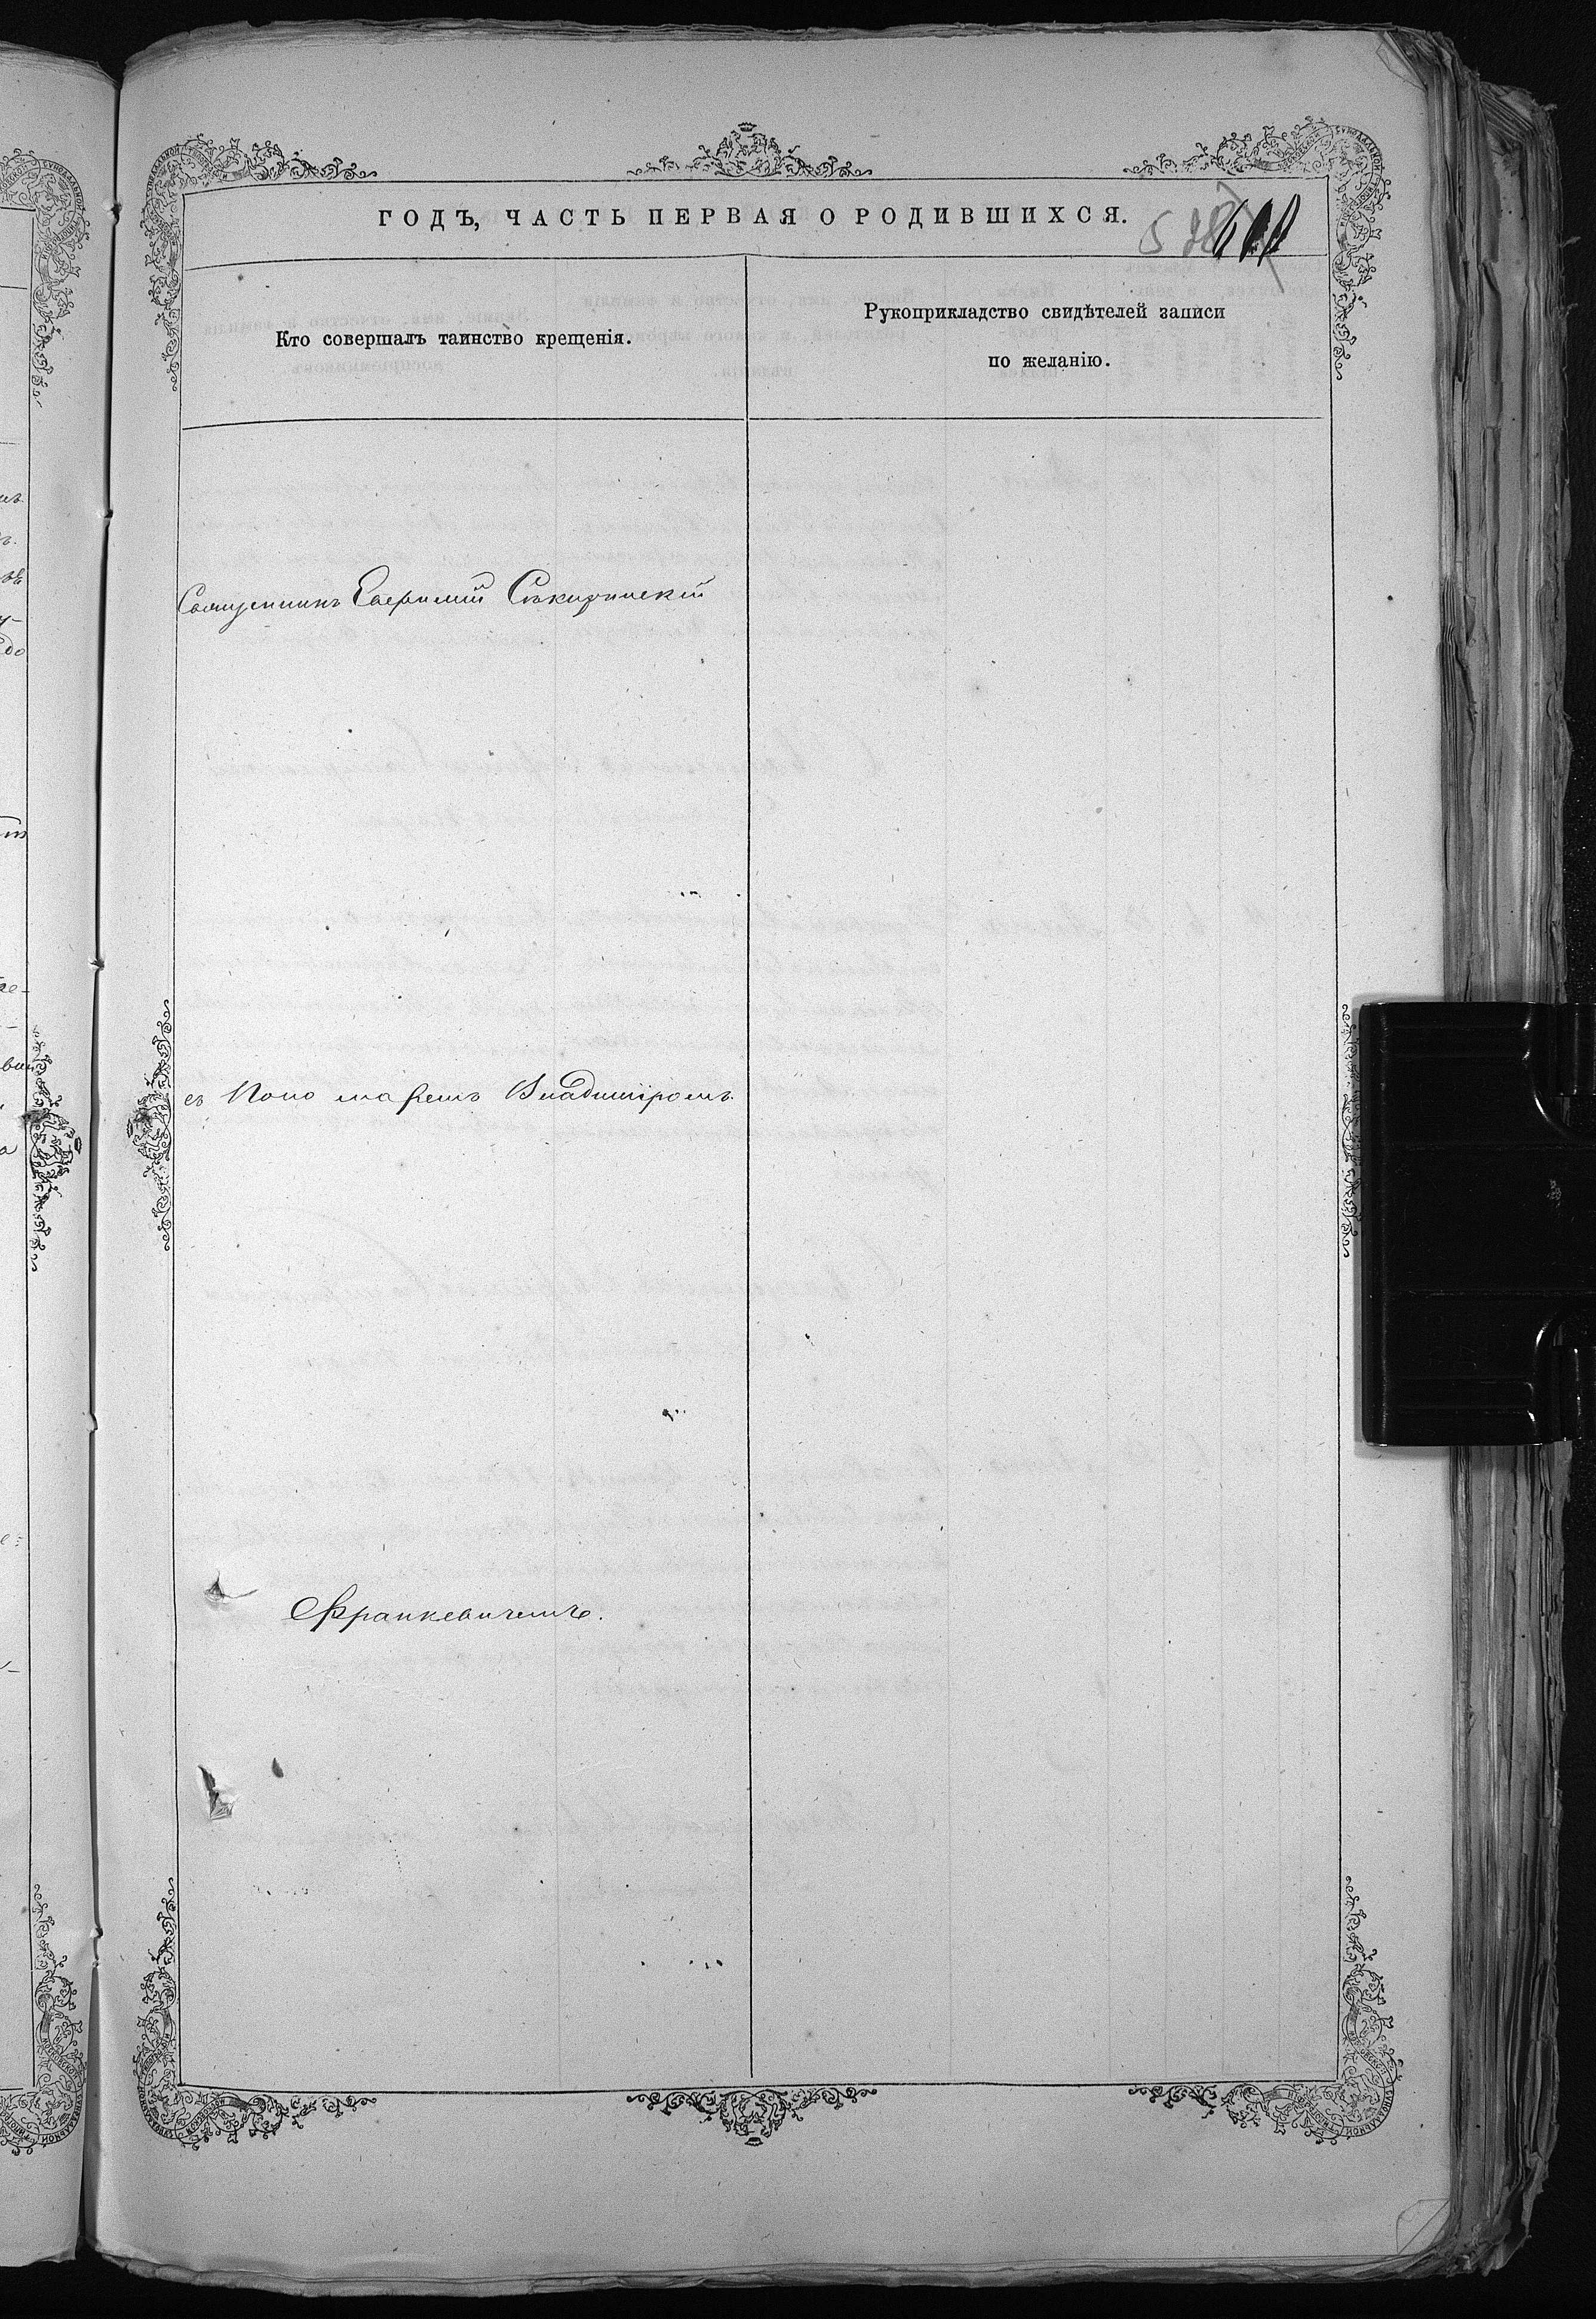 ГОДЪ, ЧАСТЬ ПЕРВАЯ О РОДИВШИХСЯ.
Кто совершалъ таинство крещенія.
Рукоприкладство свидѣтелей записи
по желанію.
Священникъ Евфимій Сѣкиринскій
съ Пономаремъ Владиміромъ
Франкевичемъ.